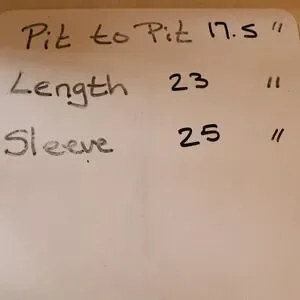 Pit to Pit 17.5 "
Length 23 "
Sleeve 25 "